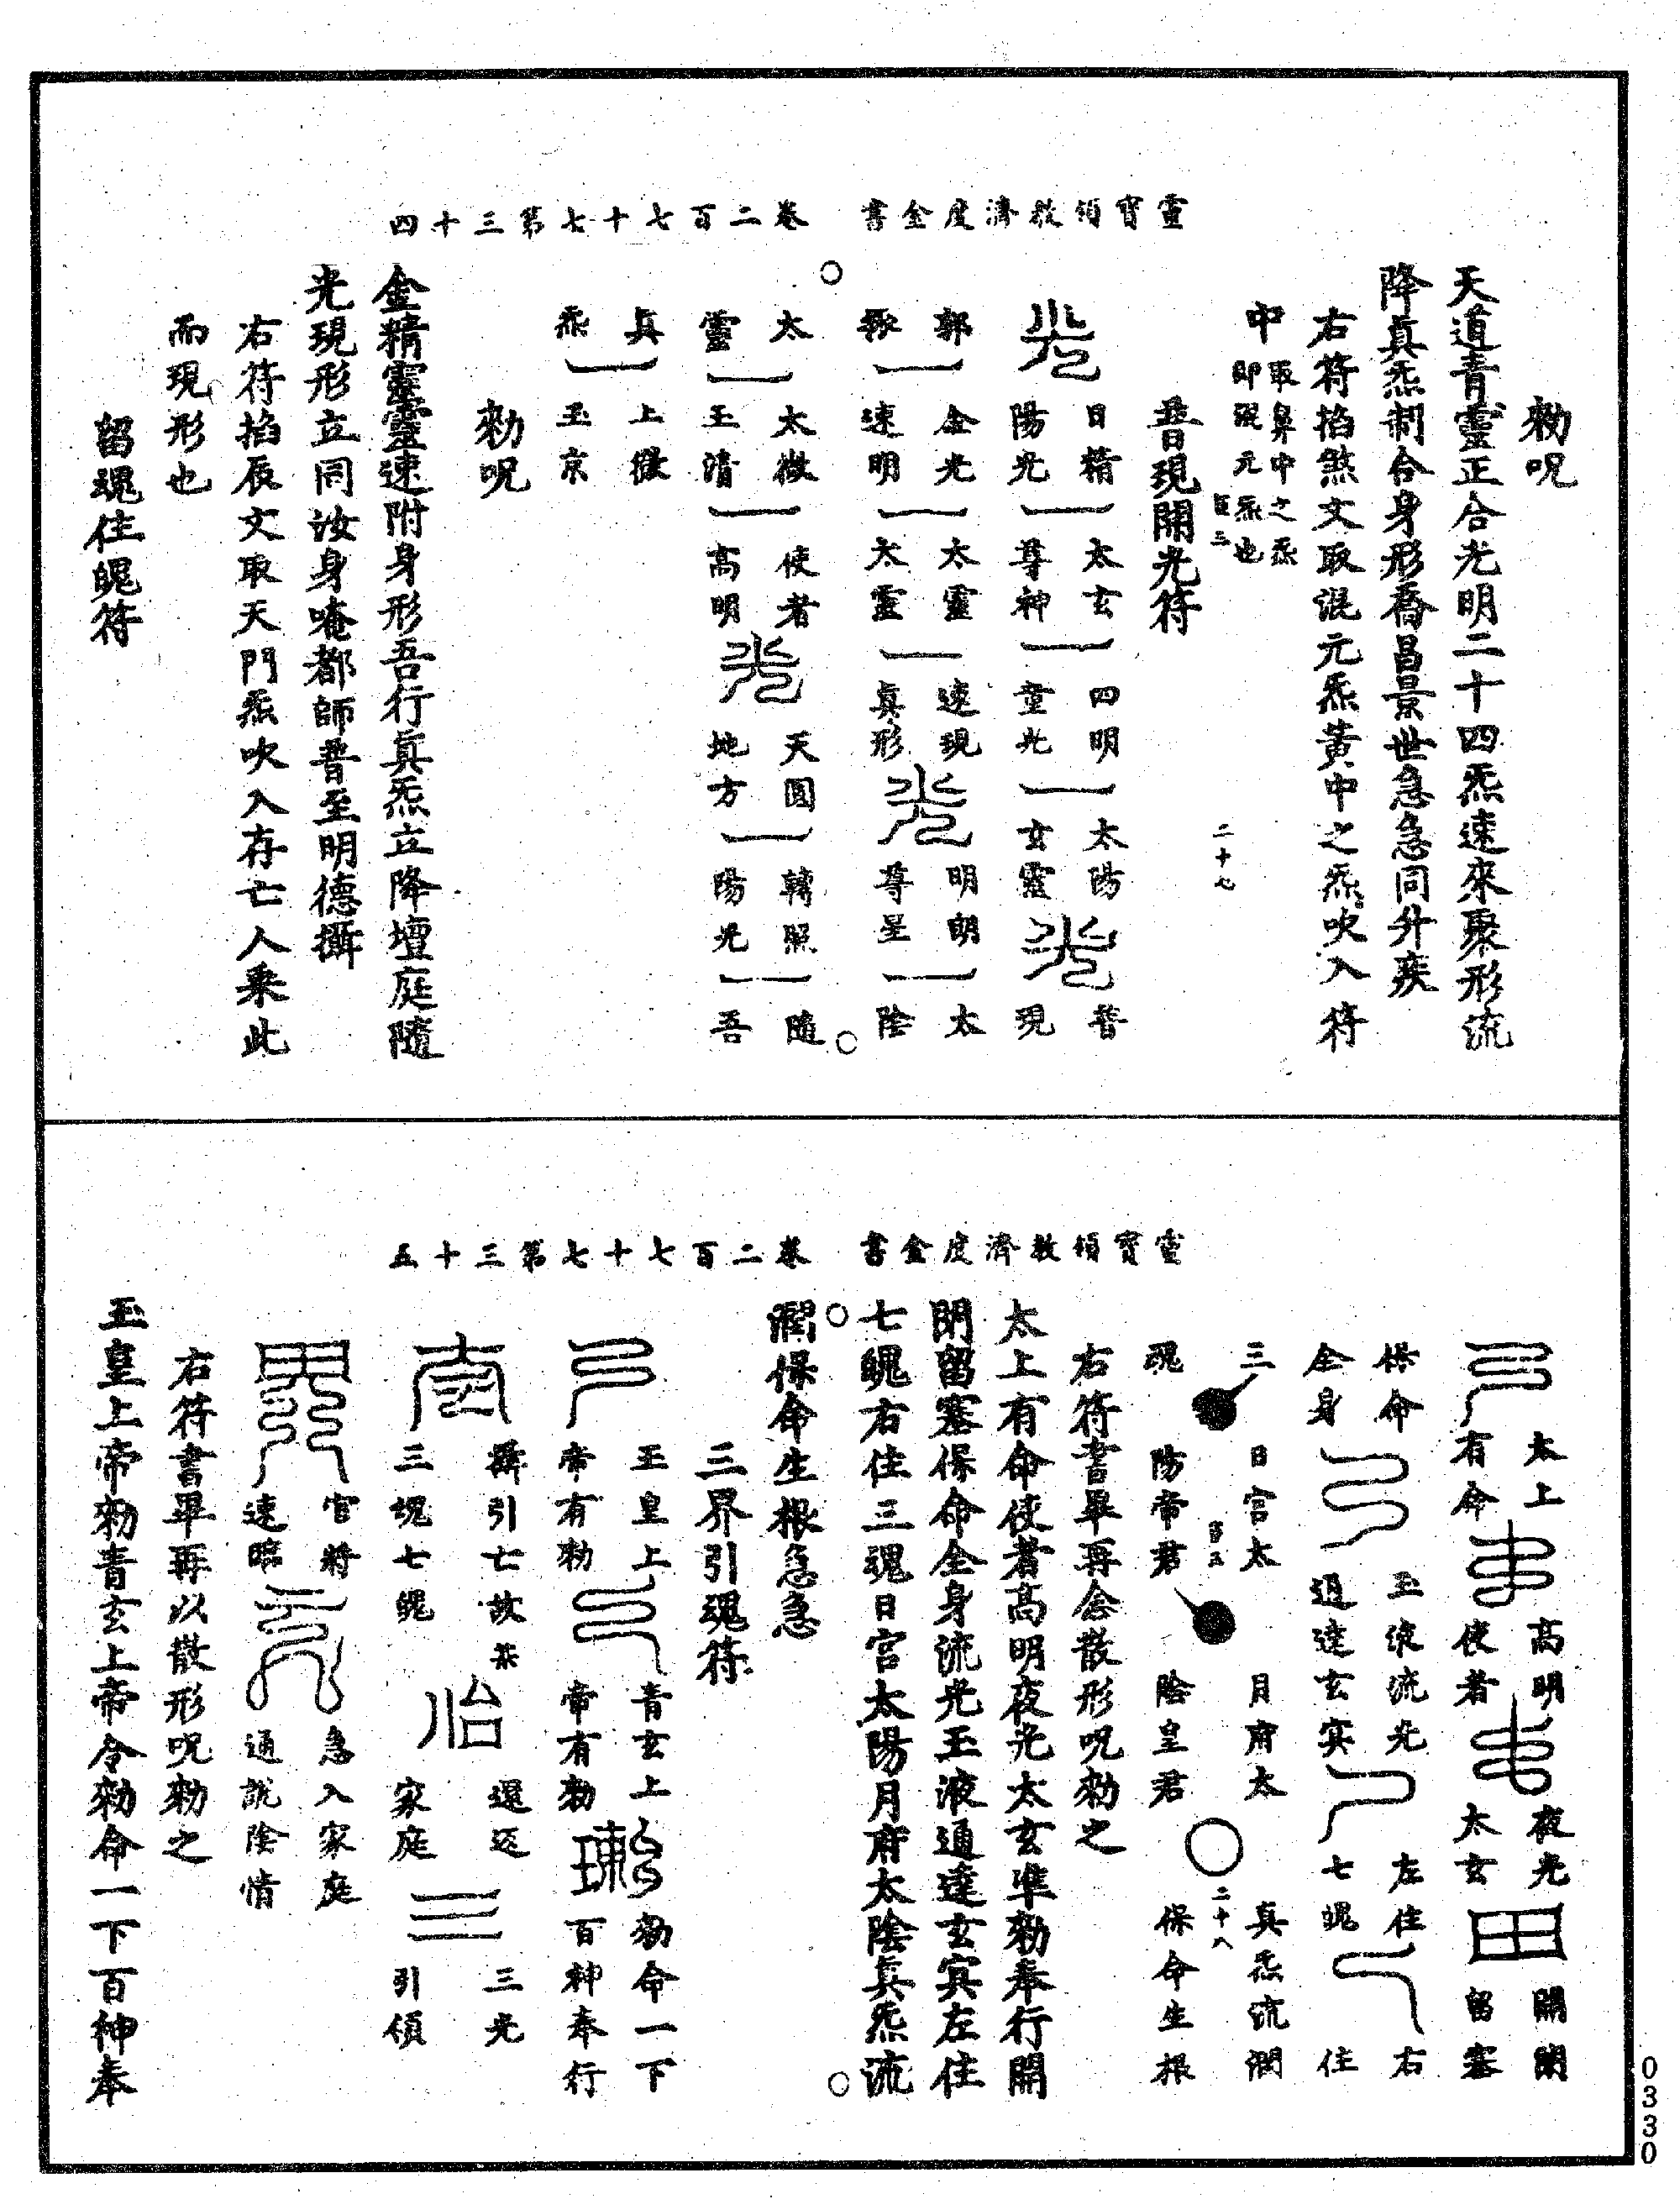 靈寶領教濟度金書　卷二百七十七第三十四
勑呪
天道青靈正合光明二十四炁速來聚形流
降真炁制合身形喬昌景世急急同升疾
右符掐煞文取混元炁黃中之炁吹入符
中取鼻中之炁即混元炁也
二十七
普現開光符
日精陽光
太玄尊神
四明童光
太陽玄靈
普現
郭
金光速明
太靈太靈
速現真形
明朗尊星
太陰
太靈
太微玉清
使者高明
天圓地方
韓照陽光
隨吾
真炁
上徹玉京
勑呪
金精靈靈速附身形吾行真炁立降壇庭隨
光現形立同汝身唵都師普至明德攝
右符掐辰文取天門炁吹入存亡人乘此
而現形也
留魂住魄符
靈寶領教濟度金書　卷二百七十七第三十五
太上有命
高明使者
夜光太玄
開閉留塞
保命全身
玉液流光通達玄冥
左住七魄
右住
三魂
日宮太陽帝君
月府太陰皇君
真炁流潤保命生根
二十八
右符書畢再念散形呪勑之
太上有命使者高明夜光太玄準勑奉行開
閉留塞保命全身流光玉液通達玄冥左住
七魄右住三魂日宮太陽月府太陰真炁流
潤保命生根急急
三界引魂符
玉皇上帝有勑
青玄上帝有勑
勑命一下百神奉行
攝引亡故某三魂七魄
還返家庭
三光引領
官將速臨
急入家庭通說陰情
右符書畢再以散形呪勑之
玉皇上帝勑青玄上帝令勑命一下百神奉
0330